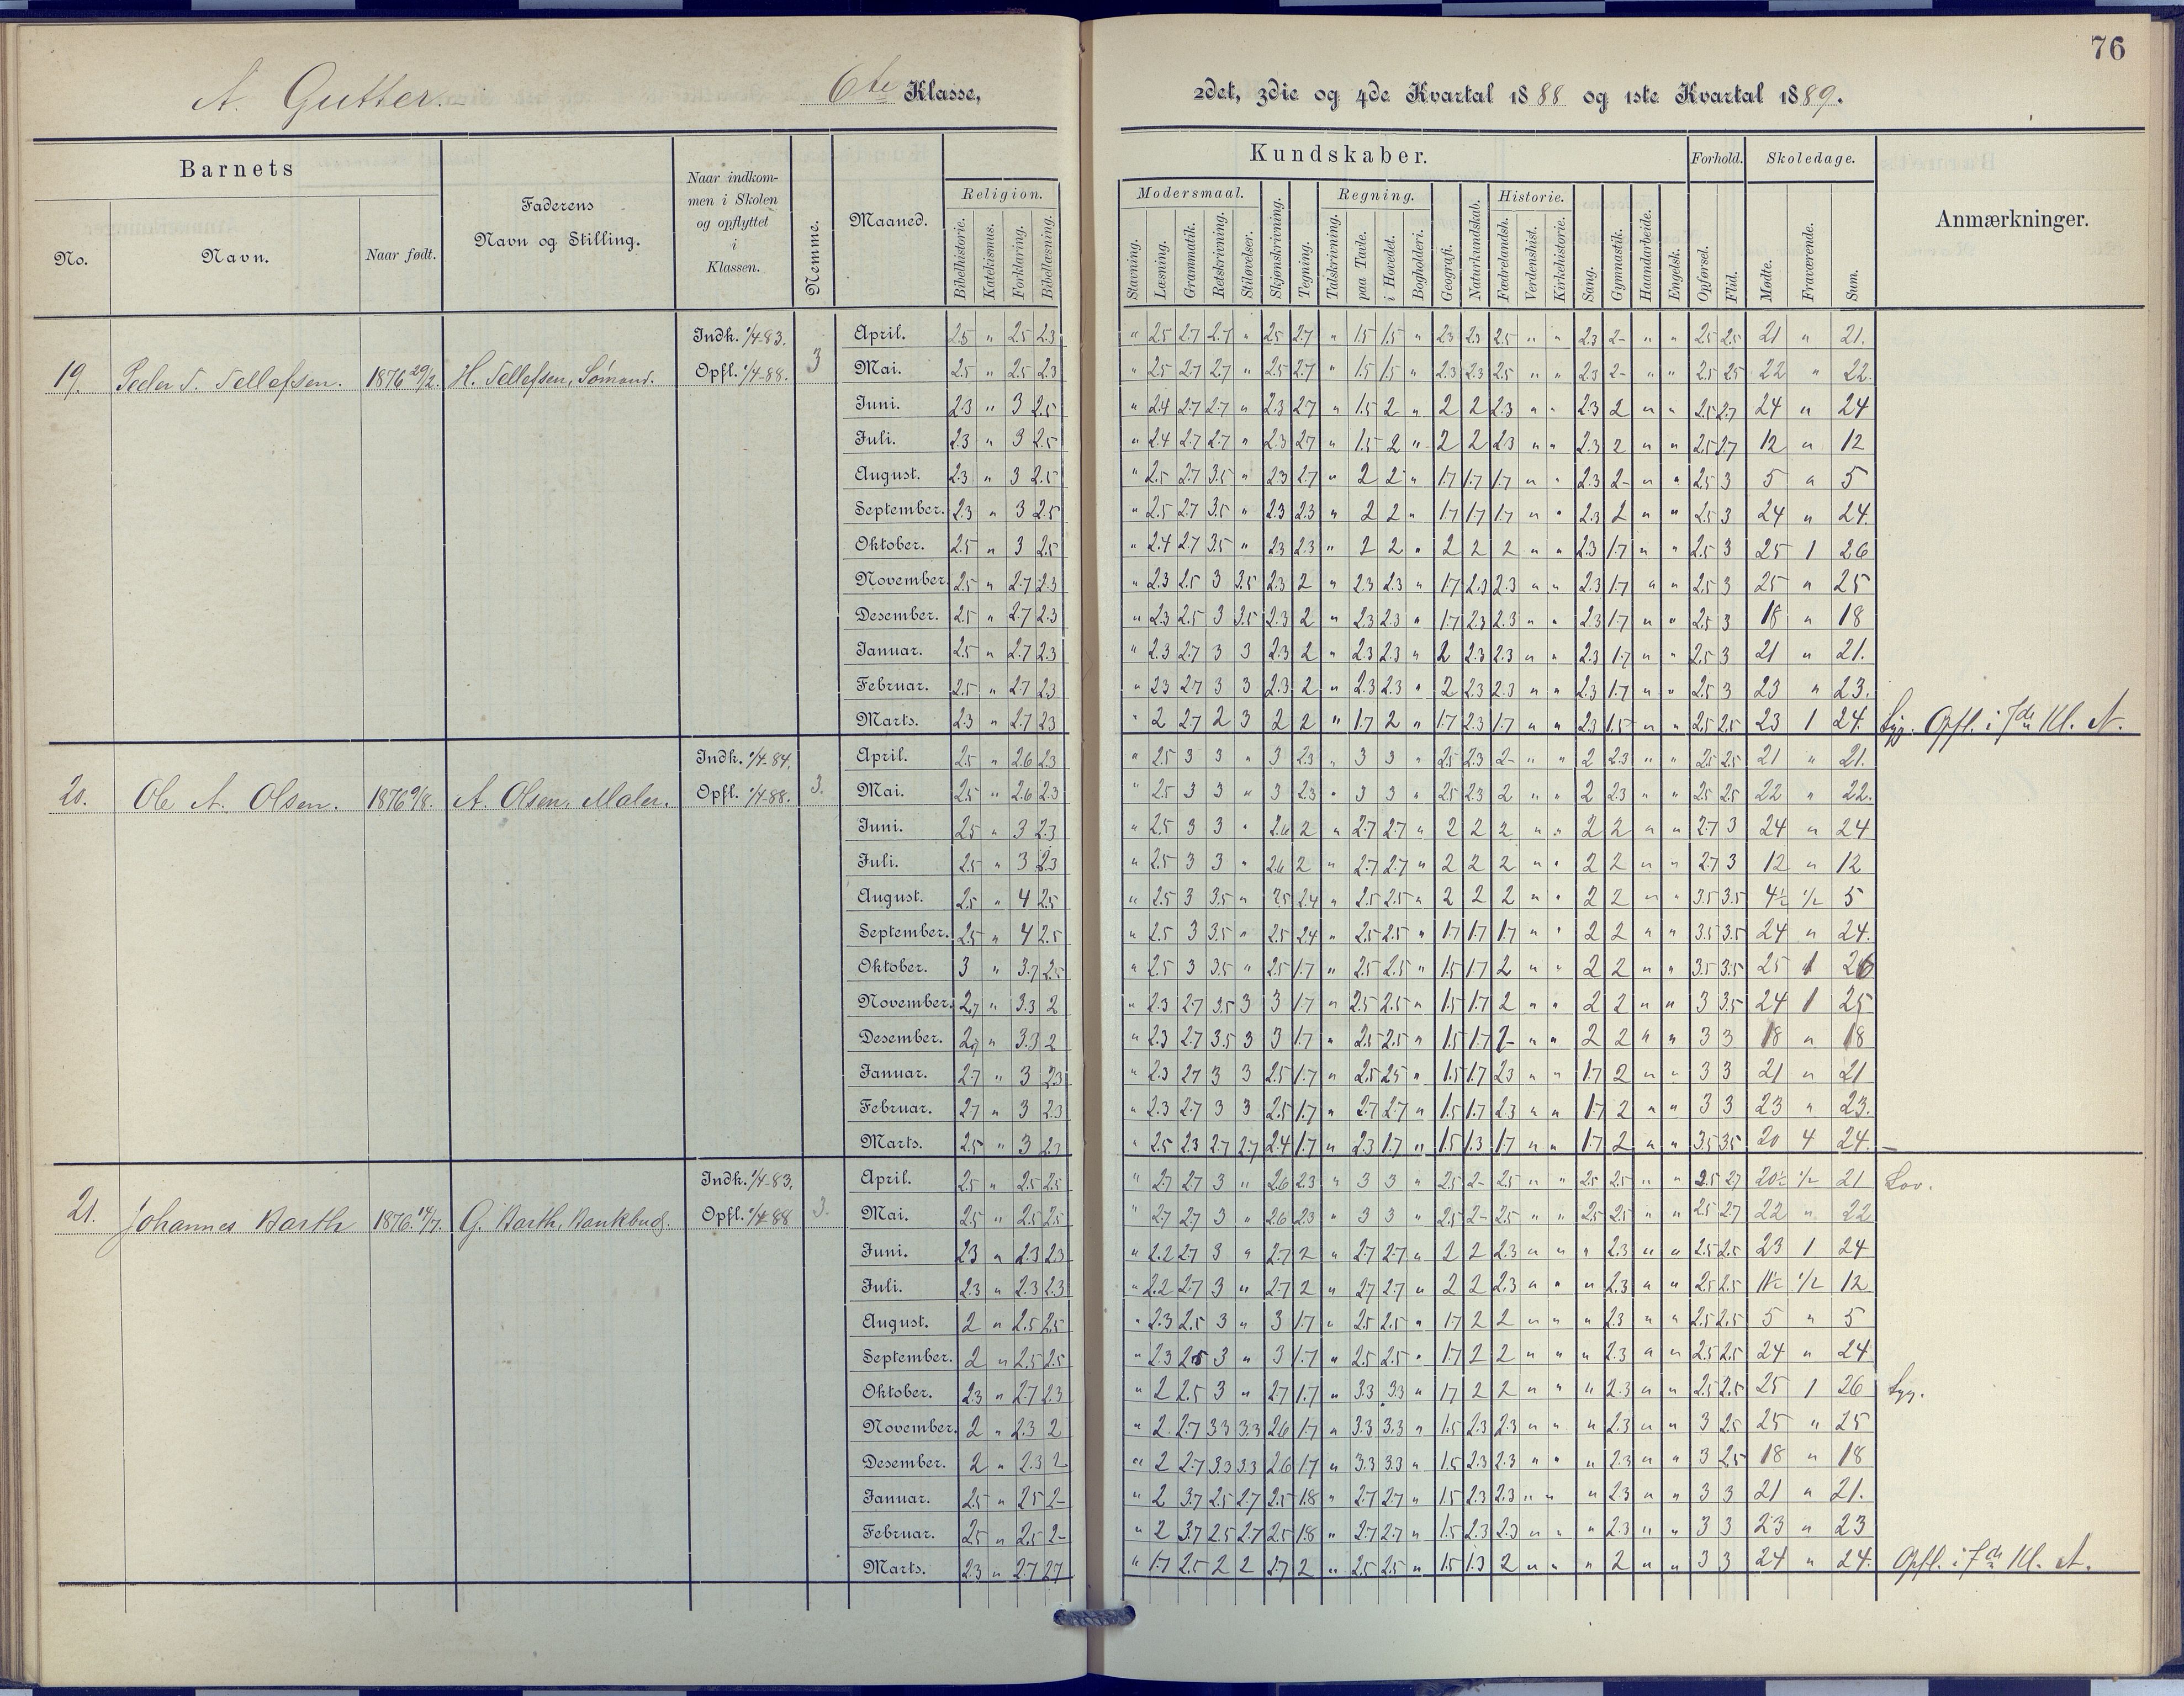 76
A. Gutter. 6te Klasse, 2det, 3die og 4de Kvartal 1888 og 1ste Kvartal 1889.
Barnets
No.
Navn.
Naar født.
Faderens
Navn og Stilling.
Naar indkom-
men i Skolen
og opflyttet
i
Klassen.
Nemme.
Maaned.
Kundskaber.
Religion.
Bibelhistorie. Katekismus. Forklaring. Bibellæsning.
Modersmaal.
Stavning. Læsning. Grammatik. Retskrivning. Stiløvelser.
Skjønskrivning. Tegning.
Regning.
Talskrivning. paa Tavle. i Hovedet. Bogholderi.
Geografi. Naturkundskab.
Historie.
Fædrelandsh. Verdenshist. Kirkehistorie.
Sang. Gymnastik. Haandarbeide. Engelsk.
Forhold.
Opførsel. Flid.
Skoledage.
Mødte. Fraværende. Sum.
Anmærkninger.
19. Peder T. Tellefsen. 1876 29/2. H. Tellefsen, Sømand. Indk. 1/4-83. Opfl. 1/4-88. 3
April. 2.5 " 2.5 2.3 " 2.5 2.7 2.7 " 2.5 2.7 " 1.5 1.5 " 2.3 2.3 2.5 " " 2.3 2- " " 2.5 2.5 21 " 21.
Mai. 2.5 " 2.5 2.3 " 2.5 2.7 2.7 " 2.5 2.7 " 1.5 1.5 " 2.3 2.3 2.5 " " 2.3 2- " " 2.5 2.5 22 " 22.
Juni. 2.3 " 3 2.5 " 2.4 2.7 2.7 " 2.3 2.7 " 1.5 2 " 2 2 2.3 " " 2.3 2 " " 2.5 2.7 24 " 24
Juli. 2.3 " 3 2.5 " 2.4 2.7 2.7 " 2.3 2.7 " 1.5 2 " 2 2 2.3 " " 2.3 2 " " 2.5 2.7 12 " 12
August. 2.3 " 3 2.5 " 2.5 2.7 3.5 " 2.3 2.7 " 2 2 " 1.7 1.7 1.7 " " 2.3 2- " " 2.5 3 5 " 5
September. 2.3 " 3 2.5 " 2.5 2.7 3.5 " 2.3 2.3 " 2 2 " 1.7 1.7 1.7 " " 2.3 2 " " 2.5 3 24 " 24.
Oktober. 2.5 " 3 2.5 " 2.4 2.7 3.5 " 2.3 2.3 " 2 2 " 2 2 2 " " 2.3 1.7 " " 2.5 3 25 1 26
November. 2.5 " 2.7 2.3 " 2.3 2.5 3 3.5 2.3 2 " 2.3 2.3 " 1.7 2.3 2.3 " " 2.3 1.7 " " 2.5 3 25 " 25
Desember. 2.5 " 2.7 2.3 " 2.3 2.5 3 3.5 2.3 2 " 2.3 2.3 " 1.7 2.3 2.3 " " 2.3 1.7 " " 2.5 3 18 " 18
Januar. 2.5 " 2.7 2.3 " 2.3 2.7 3 3 2.3 2 " 2.3 2.3 " 2 2.3 2.3 " " 2.3 1.7 " " 2.5 3 21 " 21.
Februar. 2.5 " 2.7 2.3 " 2.3 2.7 3 3 2.3 2 " 2.3 2.3 " 2 2.3 2.3 " " 2.3 1.7 " " 2.5 3 23 " 23.
Marts. 2.3 " 2.7 2.3 " 2 2.7 2 3 2 2 " 1.7 2 " 1.7 2.3 1.7 " " 2.3 1.5 " " 2.5 2.5 23 1 24. Syg. Opfl. i 7de Kl. A.
20. Ole A. Olsen. 1876 9/8. A. Olsen, Maler. Indk. 1/4-84. Opfl. 1/4-88. 3.
April. 2.5 " 2.6 2.3 " 2.5 3 3 " 3 2.3 " 3 3 " 2.5 2.3 2- " " 2 2.3 " " 2.5 2.5 21 " 21.
Mai. 2.5 " 2.6 2.3 " 2.5 3 3 " 3 2.3 " 3 3 " 2.5 2.3 2 " " 2 2.3 " " 2.5 2.5 22 " 22.
Juni. 2.5 " 3 2.3 " 2.5 3 3 " 2.6 2 " 2.7 2.7 " 2 2 2 " " 2 2 " " 2.7 3 24 " 24
Juli. 2.5 " 3 2.3 " 2.5 3 3 " 2.6 2 " 2.7 2.7 " 2 2 2 " " 2 2 " " 2.7 3 12 " 12
August. 2.5 " 4 2.5 " 2.5 3 3.5 " 2.5 2.4 " 2.5 2.5 " 2 2 2 " " 2 2 " " 3.5 3.5 4½ ½ 5
September. 2.5 " 4 2.5 " 2.5 3 3.5 " 2.5 2.4 " 2.5 2.5 " 1.7 1.7 1.7 " " 2 2 " " 3.5 3.5 24 " 24.
Oktober. 3 " 3.7 2.5 " 2.5 3 3.5 " 2.5 1.7 " 2.5 2.5 " 1.5 1.7 2 " " 2 2 " " 3.5 3.5 25 1 26
November. 2.7 " 3.3 2 " 2.3 2.7 3.5 3 3 1.7 " 2.5 2.5 " 1.5 1.7 2 " " 2 2 " " 3 3.5 24 1 25
Desember. 2.7 " 3.3 2 " 2.3 2.7 3.5 3 3 1.7 " 2.5 2.5 " 1.5 1.7 2- " " 2 2 " " 3 3 18 " 18
Januar. 2.7 " 3 2.3 " 2.3 2.7 3 3 2.5 1.7 " 2.5 2.5 " 1.5 1.7 2.3 " " 1.7 2 " " 3 3 21 " 21
Februar. 2.7 " 3 2.3 " 2.3 2.7 3 3 2.5 1.7 " 2.7 2.7 " 1.5 1.7 2.3 " " 1.7 2 " " 3 3 23 " 23.
Marts. 2.5 " 3 2.3 " 2.5 2.3 2.7 2.7 2.4 1.7 " 2.3 1.7 " 1.5 1.3 1.7 " " 1.7 2 " " 3.5 3.5 20 4 24. —
21. Johannes Barth 1876. 14/7. G. Barth, Bankbud. Indk. 1/4-83. Opfl. 1/4-88 3.
April. 2.5 " 2.5 2.5 " 2.7 2.7 3 " 2.6 2.3 " 3 3 " 2.5 2- 2.5 " " 2.5 2.5 " " 2.5 2.7 20½ ½ 21 Lov.
Mai. 2.5 " 2.5 2.5 " 2.7 2.7 3 " 2.6 2.3 " 3 3 " 2.5 2- 2.5 " " 2.5 2.5 " " 2.5 2.7 22 " 22
Juni. 2.3 " 2.3 2.3 " 2.2 2.7 3 " 2.7 2 " 2.7 2.7 " 2 2 2.3 " " " 2.3 " " 2.5 2.5 23 1 24
Juli. 2.3 " 2.3 2.3 " 2.2 2.7 3 " 2.7 2 " 2.7 2.7 " 2 2 2.3 " " " 2.3 " " 2.5 2.5 11½ ½ 12
August. 2 " 2.5 2.5 " 2.3 2.5 3 " 3 1.7 " 2.5 2.5 " 1.7 2 2 " " " 2.3 " " 2.5 2.5 5 " 5
September. 2 " 2.5 2.5 " 2.3 2.5 3 " 3 1.7 " 2.5 2.5 " 1.7 2 2 " " " 2.3 " " 2.5 2.5 24 " 24
Oktober. 2.3 " 2.7 2.3 " 2 2.5 3 " 2.7 1.7 " 3.3 3.3 " 1.7 2 2 " " " 2.3 " " 2.5 2.5 25 1 26 Syg.
November. 2 " 2.3 2 " 2 2.7 3.3 3.3 2.6 1.7 " 3.3 3.3 " 1.5 2.3 2.3 " " " 2.3 " " 3 2.5 25 " 25
Desember. 2 " 2.3 2 " 2 2.7 3.3 3.3 2.6 1.7 " 3.3 3.3 " 1.5 2.3 2.3 " " " 2.3 " " 3 2.5 18 " 18
Januar. 2.5 " 2.5 2- " 2 3.7 2.5 2.7 2.5 1.8 " 2.7 2.7 " 1.5 2.3 2.3 " " " 2.3 " " 3 3 21 " 21.
Februar. 2.5 " 2.5 2- " 2 3.7 2.5 2.7 2.5 1.8 " 2.7 2.7 " 1.5 2.3 2.3 " " " 2.3 " " 3 3 23 " 23
Marts. 2.3 " 2.7 2.7 " 1.7 2.5 2 2 2.7 2 " 2.5 2.5 " 1.5 1.3 2 " " " 2 " " 3 3 24 " 24. Opfl. i 7de Kl. A.